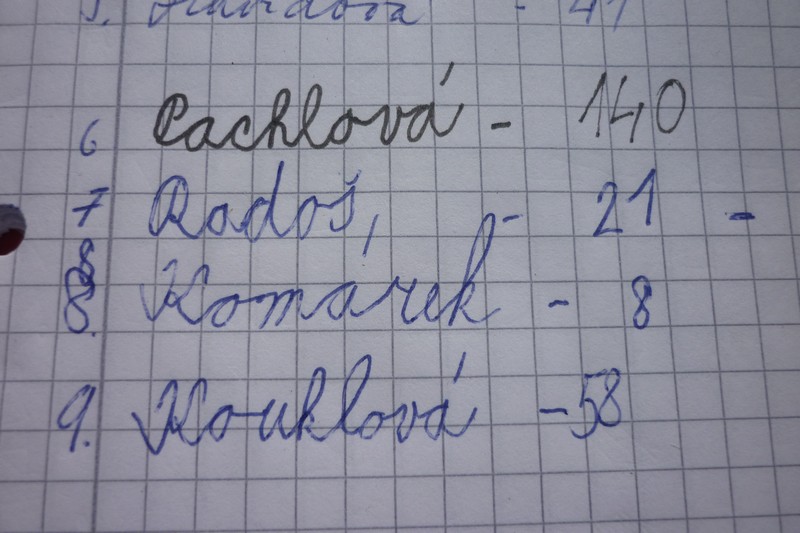 5. - 41
6 Cachlová - 140
7 Radoš, - 21 -
8. Komárek - 8
9. Kouklová - 58